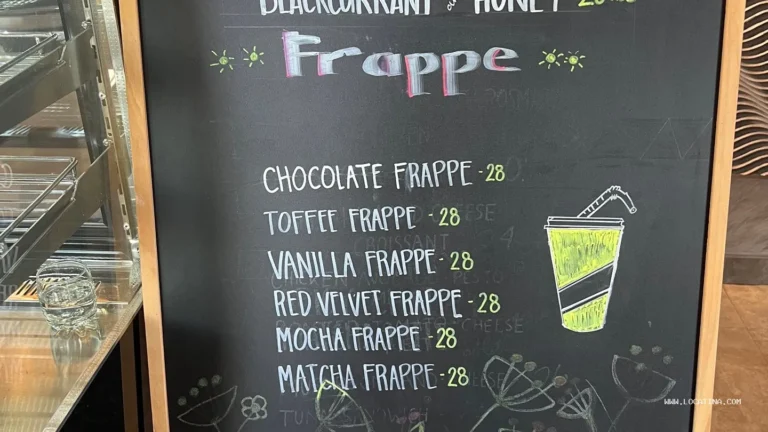 BLACKCURRANT & HONEY
Frappe
CHOCOLATE FRAPPE - 28
TOFFEE FRAPPE - 28
CROISSANT
VANILLA FRAPPE - 28
RED VELVET FRAPPE - 28
MOCHA FRAPPE - 28
MATCHA FRAPPE - 28
WWW.LOCATINA.COM